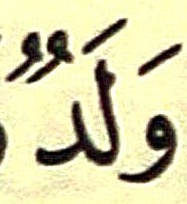 وَلَدٌ